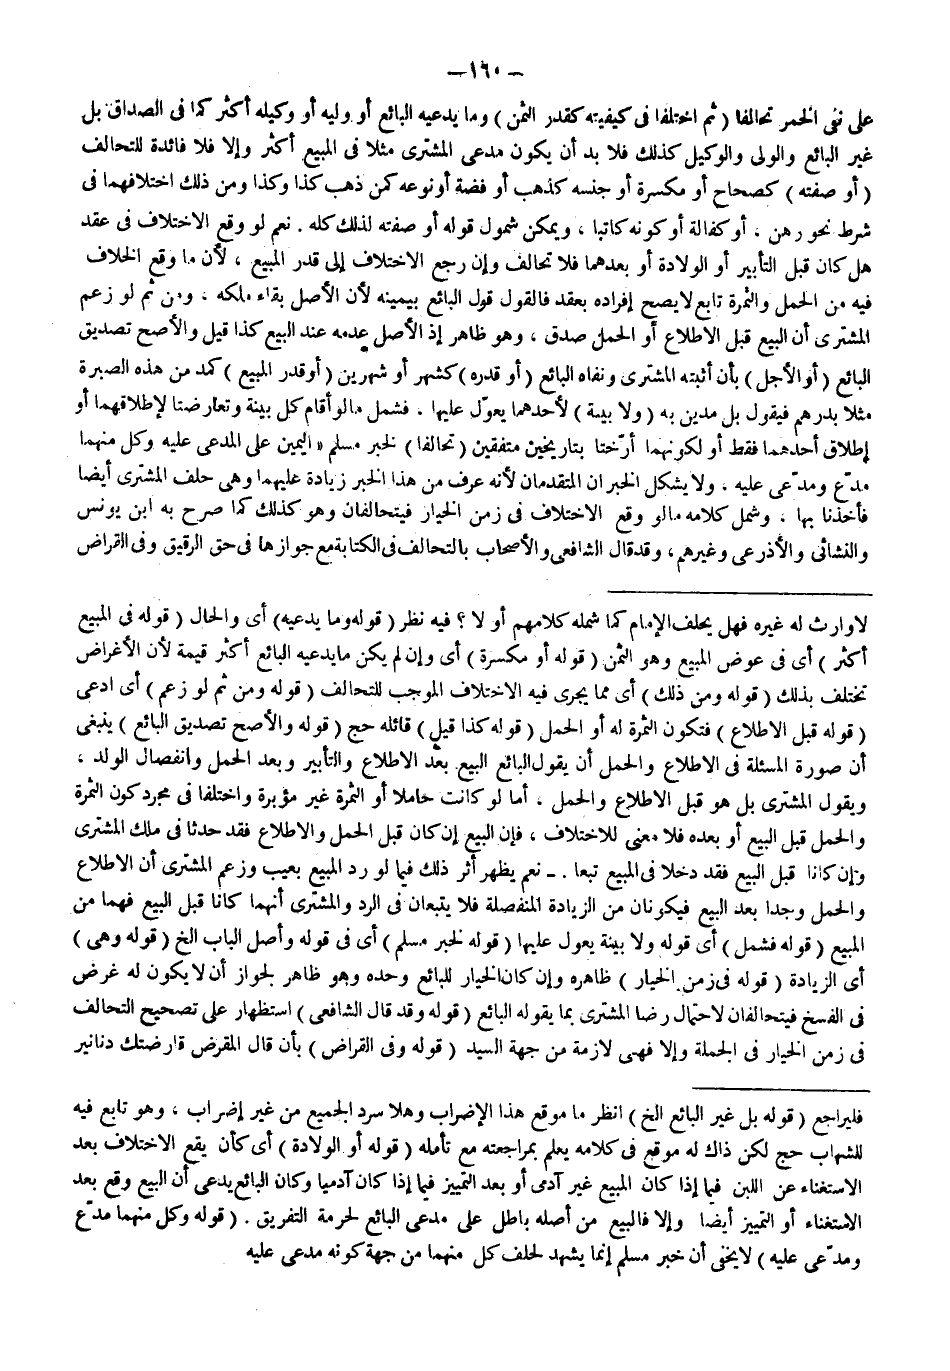 -١٦٠-
على نفى الخمر تحالفا ( ثم اختلفا فى كيفيته كقدر الثمن ) وما يدعيه البائع أو وليه أو وكيله أكثر كما فى الصداق بل
غير البائع والولى والوكيل كذلك فلا بد أن يكون مدعى المشترى مثلا فى المبيع أكثر وإلا فلا فائدة للتحالف
( أو صفته ) كصحاح أو مكسرة أو جنسه كذهب أو فضة أونوعه كمن ذهب كذا وكذا ومن ذلك اختلافهما فى
شرط نحو رهن ، أو كفالة أو كونه كاتبا ، ويمكن شمول قوله أو صفته لذلك كله . نعم لو وقع الاختلاف فى عقد
هل كان قبل التأبير أو الولادة أو بعدهما فلا تحالف وإن رجع الاختلاف إلى قدر المبيع ، لأن ما وقع الخلاف
فيه من الحمل والثمرة تابع لايصح إفراده بعقد فالقول قول البائع بيمينه لأن الأصل بقاء ملكه ، ومن ثم لو زعم
المشترى أن البيع قبل الاطلاع أو الحمل صدق ، وهو ظاهر إذ الأصل عدمه عند البيع كذا قيل والأصح تصديق
البائع ( أو الأجل ) بأن أثبته المشترى ونفاه البائع ( أو قدره ) كشهر أو شهرين ( أوقدر المبيع ) كمد من هذه الصبرة
مثلا بدرهم فيقول بل مدين به ( ولا بينة ) لأحدهما يعوّل عليها . فشمل مالو أقام كل بينة وتعارضتا لإطلاقهما أو
إطلاق أحدهما فقط أو لكونهما أرّختا بتاريخين متفقين ( تحالفا ) لخبر مسلم « اليمين على المدعى عليه وكل منهما
مدّع ومدّعى عليه . ولا يشكل الخبران المتقدمان لأنه عرف من هذا الخبر زيادة عليهما وهى حلف المشترى أيضا
فأخذنا بها ، وشمل كلامه مالو وقع الاختلاف فى زمن الخيار فيتحالفان وهو كذلك كما صرح به ابن يونس
والنشائى والأذرعى وغيرهم ، وقدقال الشافعى والأصحاب بالتحالف فى الكتابة مع جوازها فى حق الرقيق وفى القراض
لاوارث له غيره فهل يحلف الإمام كما شمله كلامهم أو لا ؟ فيه نظر ( قوله وما يدعيه) أى والحال ( قوله فى المبيع
أكثر ) أى فى عوض المبيع وهو الثمن ( قوله أو مكسرة ) أى وإن لم يكن مايدعيه البائع أكثر قيمة لأن الأغراض
تختلف بذلك ( قوله ومن ذلك ) أى مما يجرى فيه الاختلاف الموجب للتحالف ( قوله ومن ثم لو زعم ) أى ادعى
( قوله قبل الاطلاع ) فتكون الثمرة له أو الحمل ( قوله كذا قيل ) قائله حج ( قوله والأصح تصديق البائع ) ينبغى
أن صورة المسئلة فى الاطلاع والحمل أن يقول البائع البيع بعد الاطلاع والتأبير وبعد الحمل وانفصال الولد ،
ويقول المشترى بل هو قبل الاطلاع والحمل . أما لو كانت حاملا أو الثمرة غير مؤبرة واختلفا فى مجرد كون الثمرة
والحمل قبل البيع أو بعده فلا معنى للاختلاف ، فإن البيع إن كان قبل الحمل والاطلاع فقد حدثا فى ملك المشترى
وإن كانا قبل البيع فقد دخلا فى المبيع تبعا . ــ نعم يظهر أثر ذلك فيما لو رد المبيع بعيب وزعم المشترى أن الاطلاع
والحمل وجدا بعد البيع فيكونان من الزيادة المنفصلة فلا يتبعان فى الرد والمشترى أنهما كانا قبل البيع فهما من
المبيع ( قوله فشمل ) أى قوله ولا بينة يعول عليها ( قوله لخبر مسلم ) أى فى قوله وأصل الباب الخ ( قوله وهى )
أى الزيادة ( قوله فى زمن الخيار ) ظاهره وإن كان الخيار للبائع وحده وهو ظاهر لجواز أن لا يكون له غرض
فى الفسخ فيتحالفان لاحتمال رضا المشترى بما يقوله البائع ( قوله وقد قال الشافعى ) استظهار على تصحيح التحالف
فى زمن الخيار فى الجملة وإلا فهى لازمة من جهة السيد ( قوله وفى القراض ) بأن قال المقرض قارضتك دنانير
فليراجع ( قوله بل غير البائع الخ ) انظر ما موقع هذا الإضراب وهلا سرد الجميع من غير إضراب ، وهو تابع فيه
للشهاب حج لكن ذاك له موقع فى كلامه يعلم بمراجعته مع تأمله ( قوله أو الولادة ) أى كأن يقع الاختلاف بعد
الاستغناء عن اللبن فيما إذا كان المبيع غير آدمى أو بعد التمييز فيما إذا كان آدميا وكان البائع يدعى أن البيع وقع بعد
الاستغناء أو التمييز أيضا وإلا فالبيع من أصله باطل على مدعى البائع لحرمة التفريق . ( قوله وكل منهما مدّع
ومدّعى عليه ) لايخفى أن خبر مسلم إنما يشهد لحلف كل منهما من جهة كونه مدعى عليه